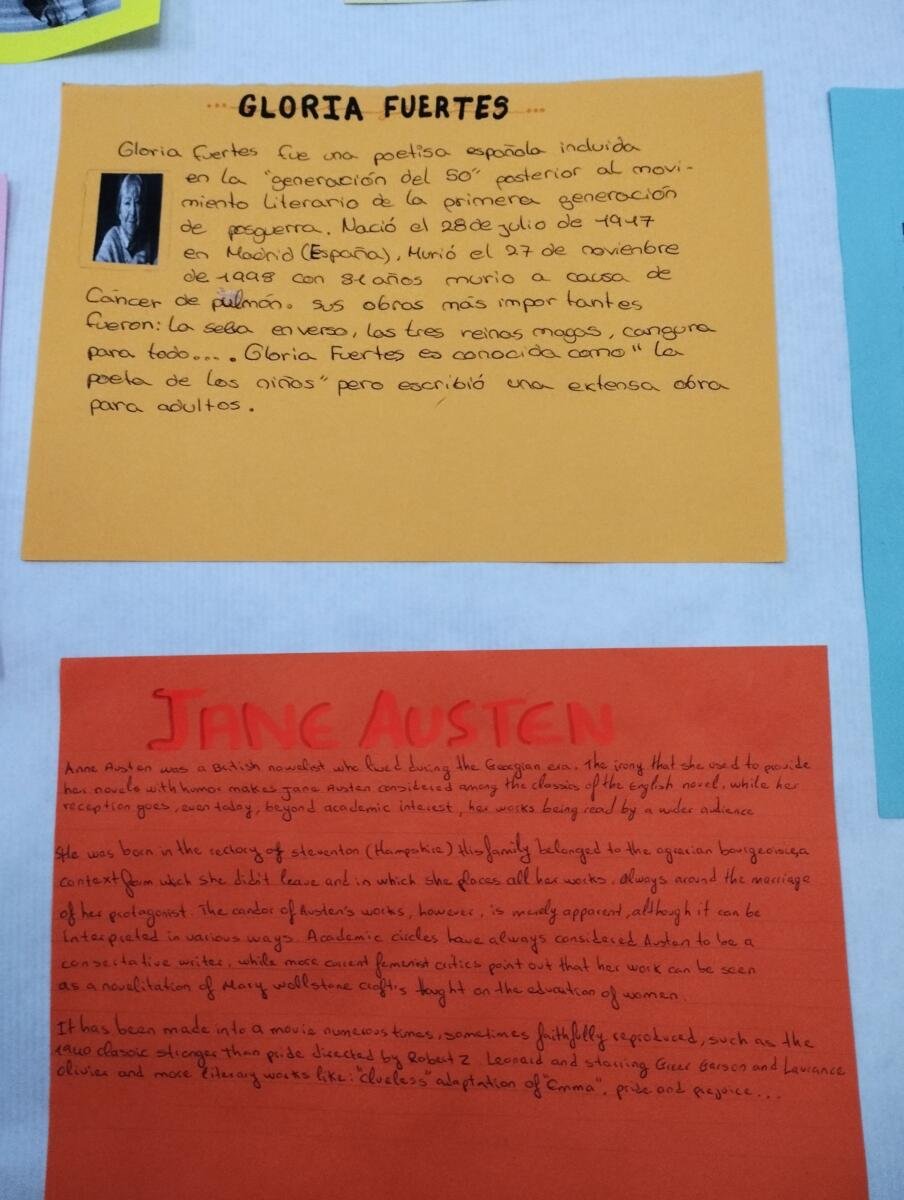 GLORIA FUERTES
Gloria Fuertes fue una poetisa española incluida
en la "generación del 50" posterior al movi-
miento literario de la primera generación
de posguerra. Nació el 28 de julio de 1917
en Madrid (España), Murió el 27 de novienbre
de 1998 con 81 años murio a causa de
Cáncer de pulmón. sus obras más impor tantes
fueron: La selva en verso, las tres reinas magas, cangura
para todo.... Gloria Fuertes es conocida como "la
poeta de los niños" pero escribió una extensa obra
para adultos.
JANE AUSTEN
Anne Austen was a British nowelist who lived during the Georgian era. The irony that she used to provide
her novels with humor makes Jane Austen considered among the classics of the English novel, while her
reception goes, even today, beyond academic interest, her works being read by a wider audience
She was born in the rectory of steventon (Hampshire) His family belonged to the agrarian bourgeoisie, a
context form wich she didn't leave and in which she places all her works, always around the marriage
of her protagonist. The candor of Austen's works, however, is merely apparent, although it can be
interpreted in various ways. Academic circles have always considered Austen to be a
consertative writer, while more current feminist critics point out that her work can be seen
as a novelitation of Mary wollstone craft's tought on the education of women.
It has been made into a movie numerous times, sometimes faithfully reproduced, such as the
1940 classic stronger than pride directed by Robert Z. Leonard and starring Greer Garson and Laurance
olivier and more literary works like: "clueless" adaptation of "Emma", pride and prejoice...